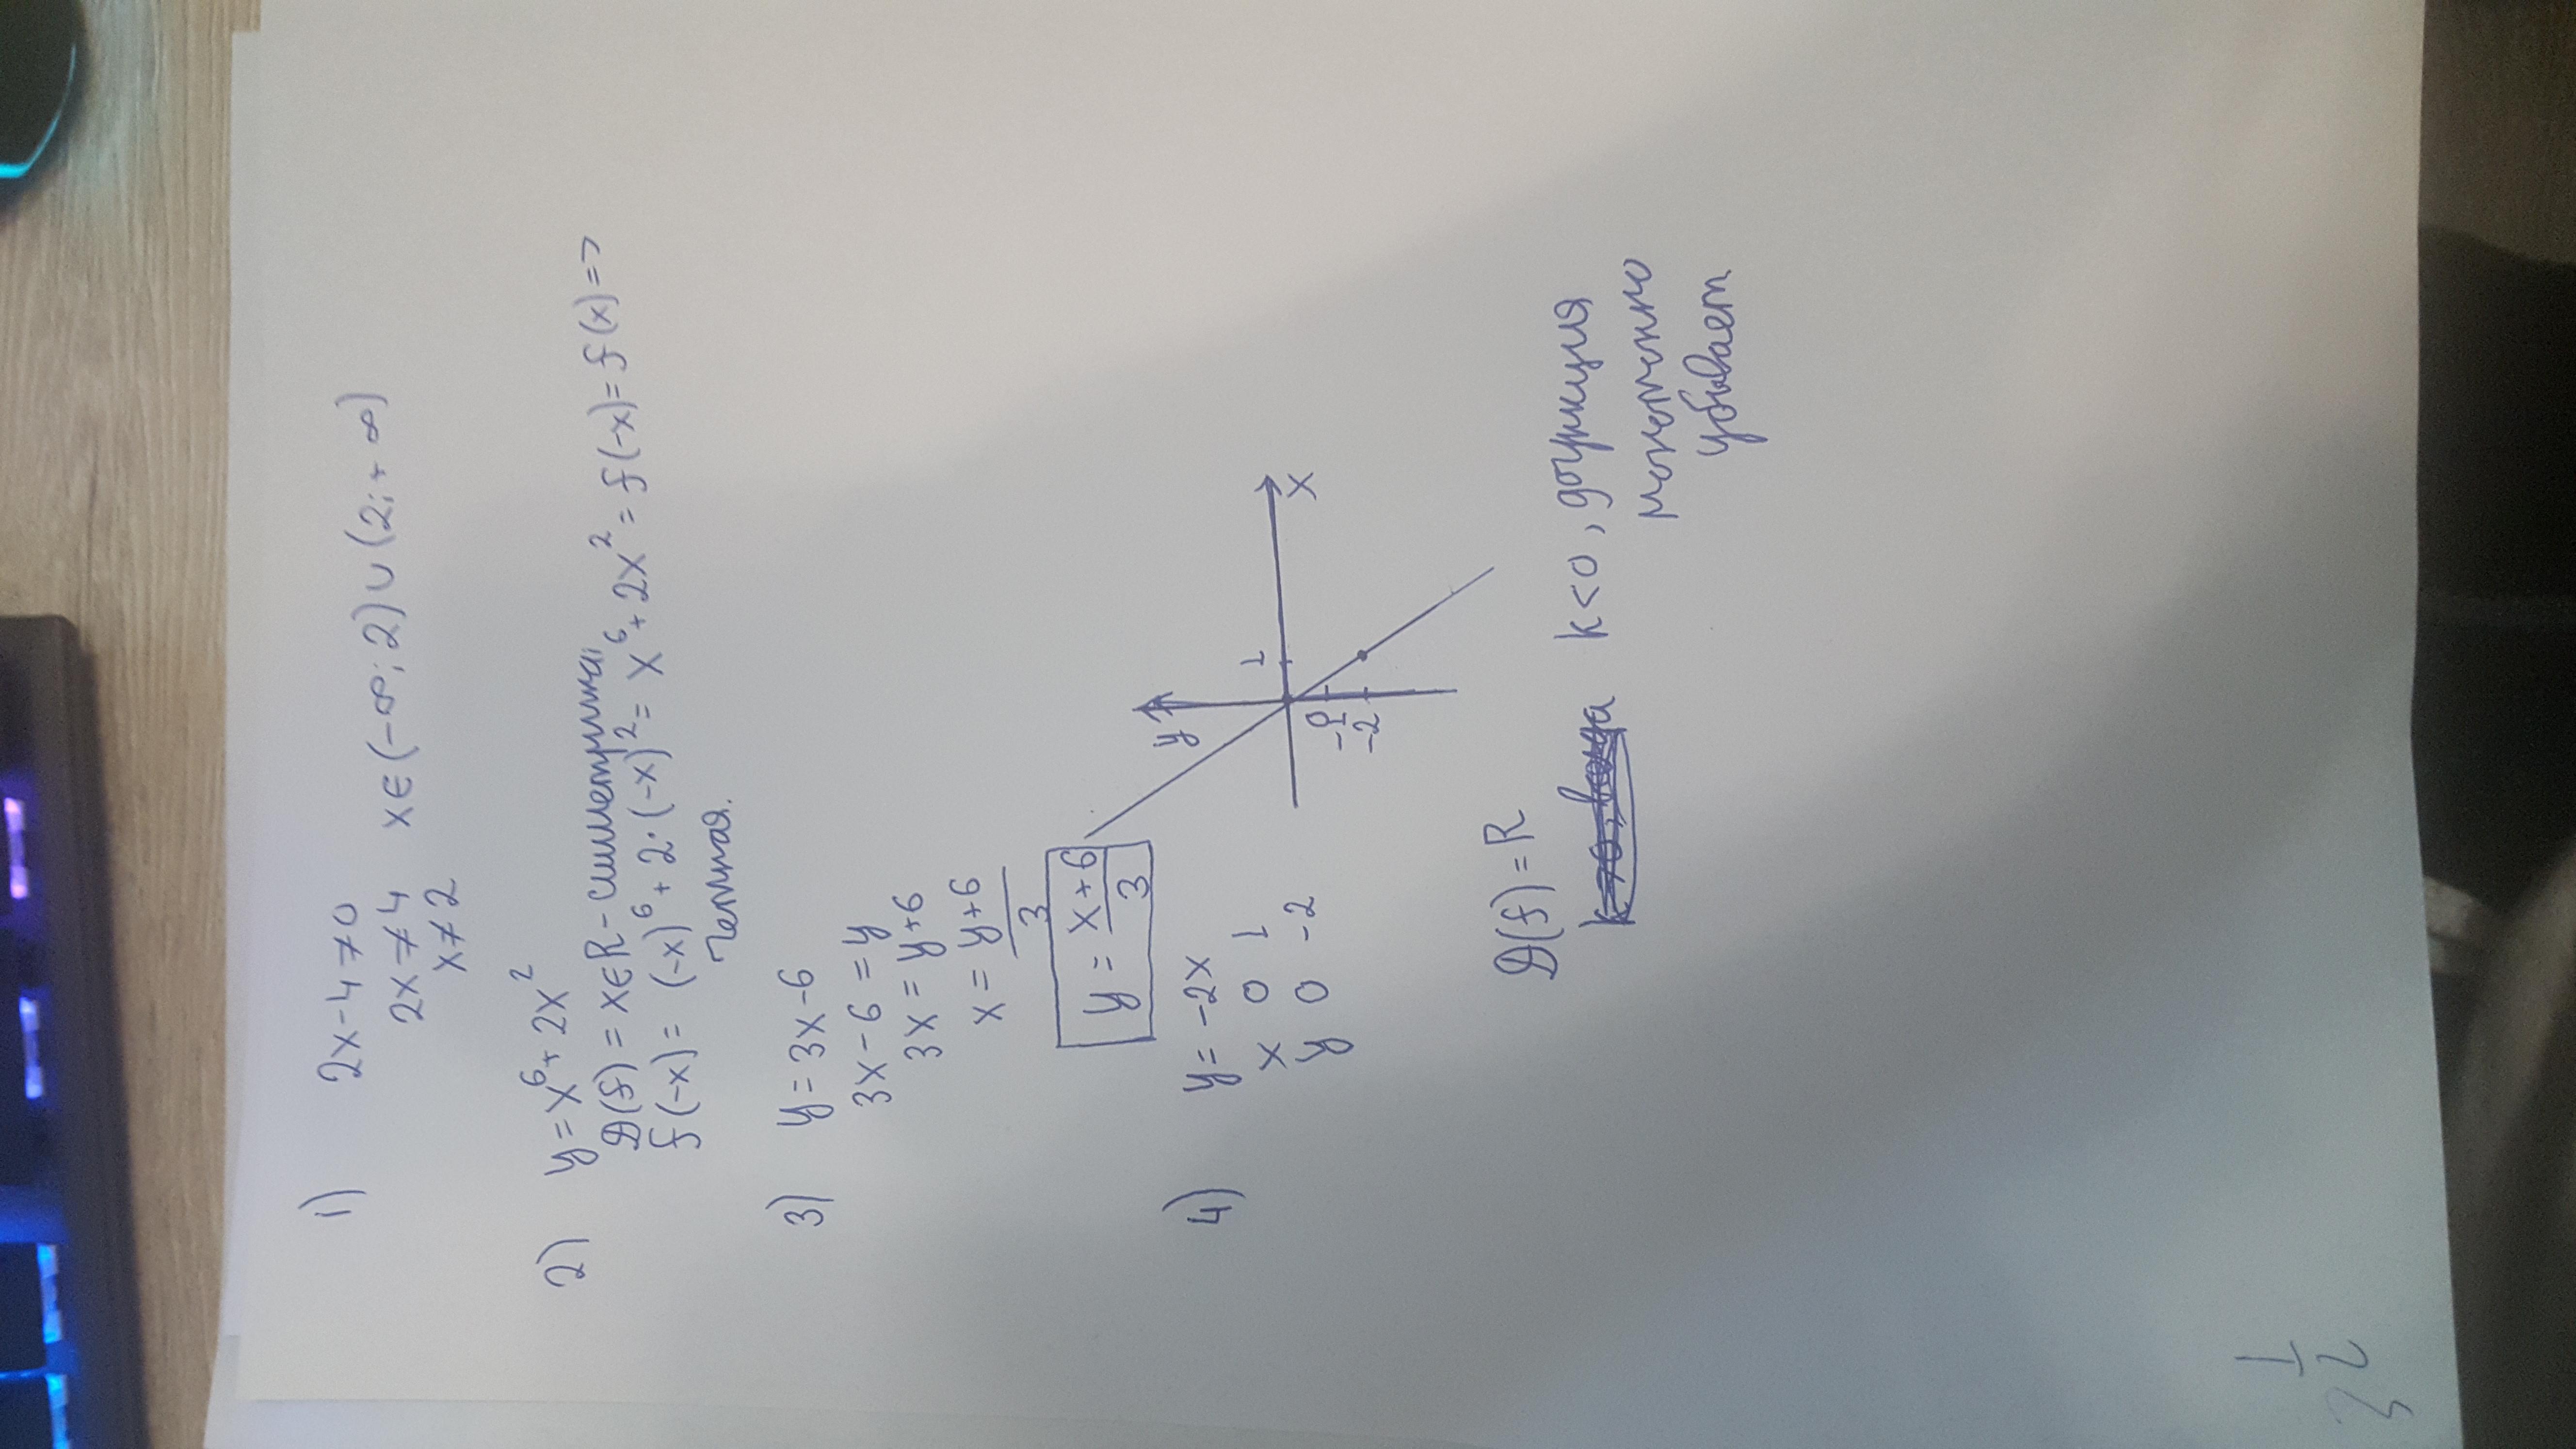 1) 2x-4≠0
2x≠4 x∈(-∞;2)∪(2;+∞)
x≠2
2) y=x⁶+2x²
D(f)=x∈R-симметрична,
f(-x)=(-x)⁶+2·(-x)²=x⁶+2x²=f(-x)=f(x)=>
четная.
3) y=3x-6
3x-6=y
3x=y+6
x=y+6/3
y=x+6/3
4) y=-2x
x 0 1
y 0 -2
y
x
1
0
-1
-2
D(f)=R
k<0, функция
монотонно
убывает